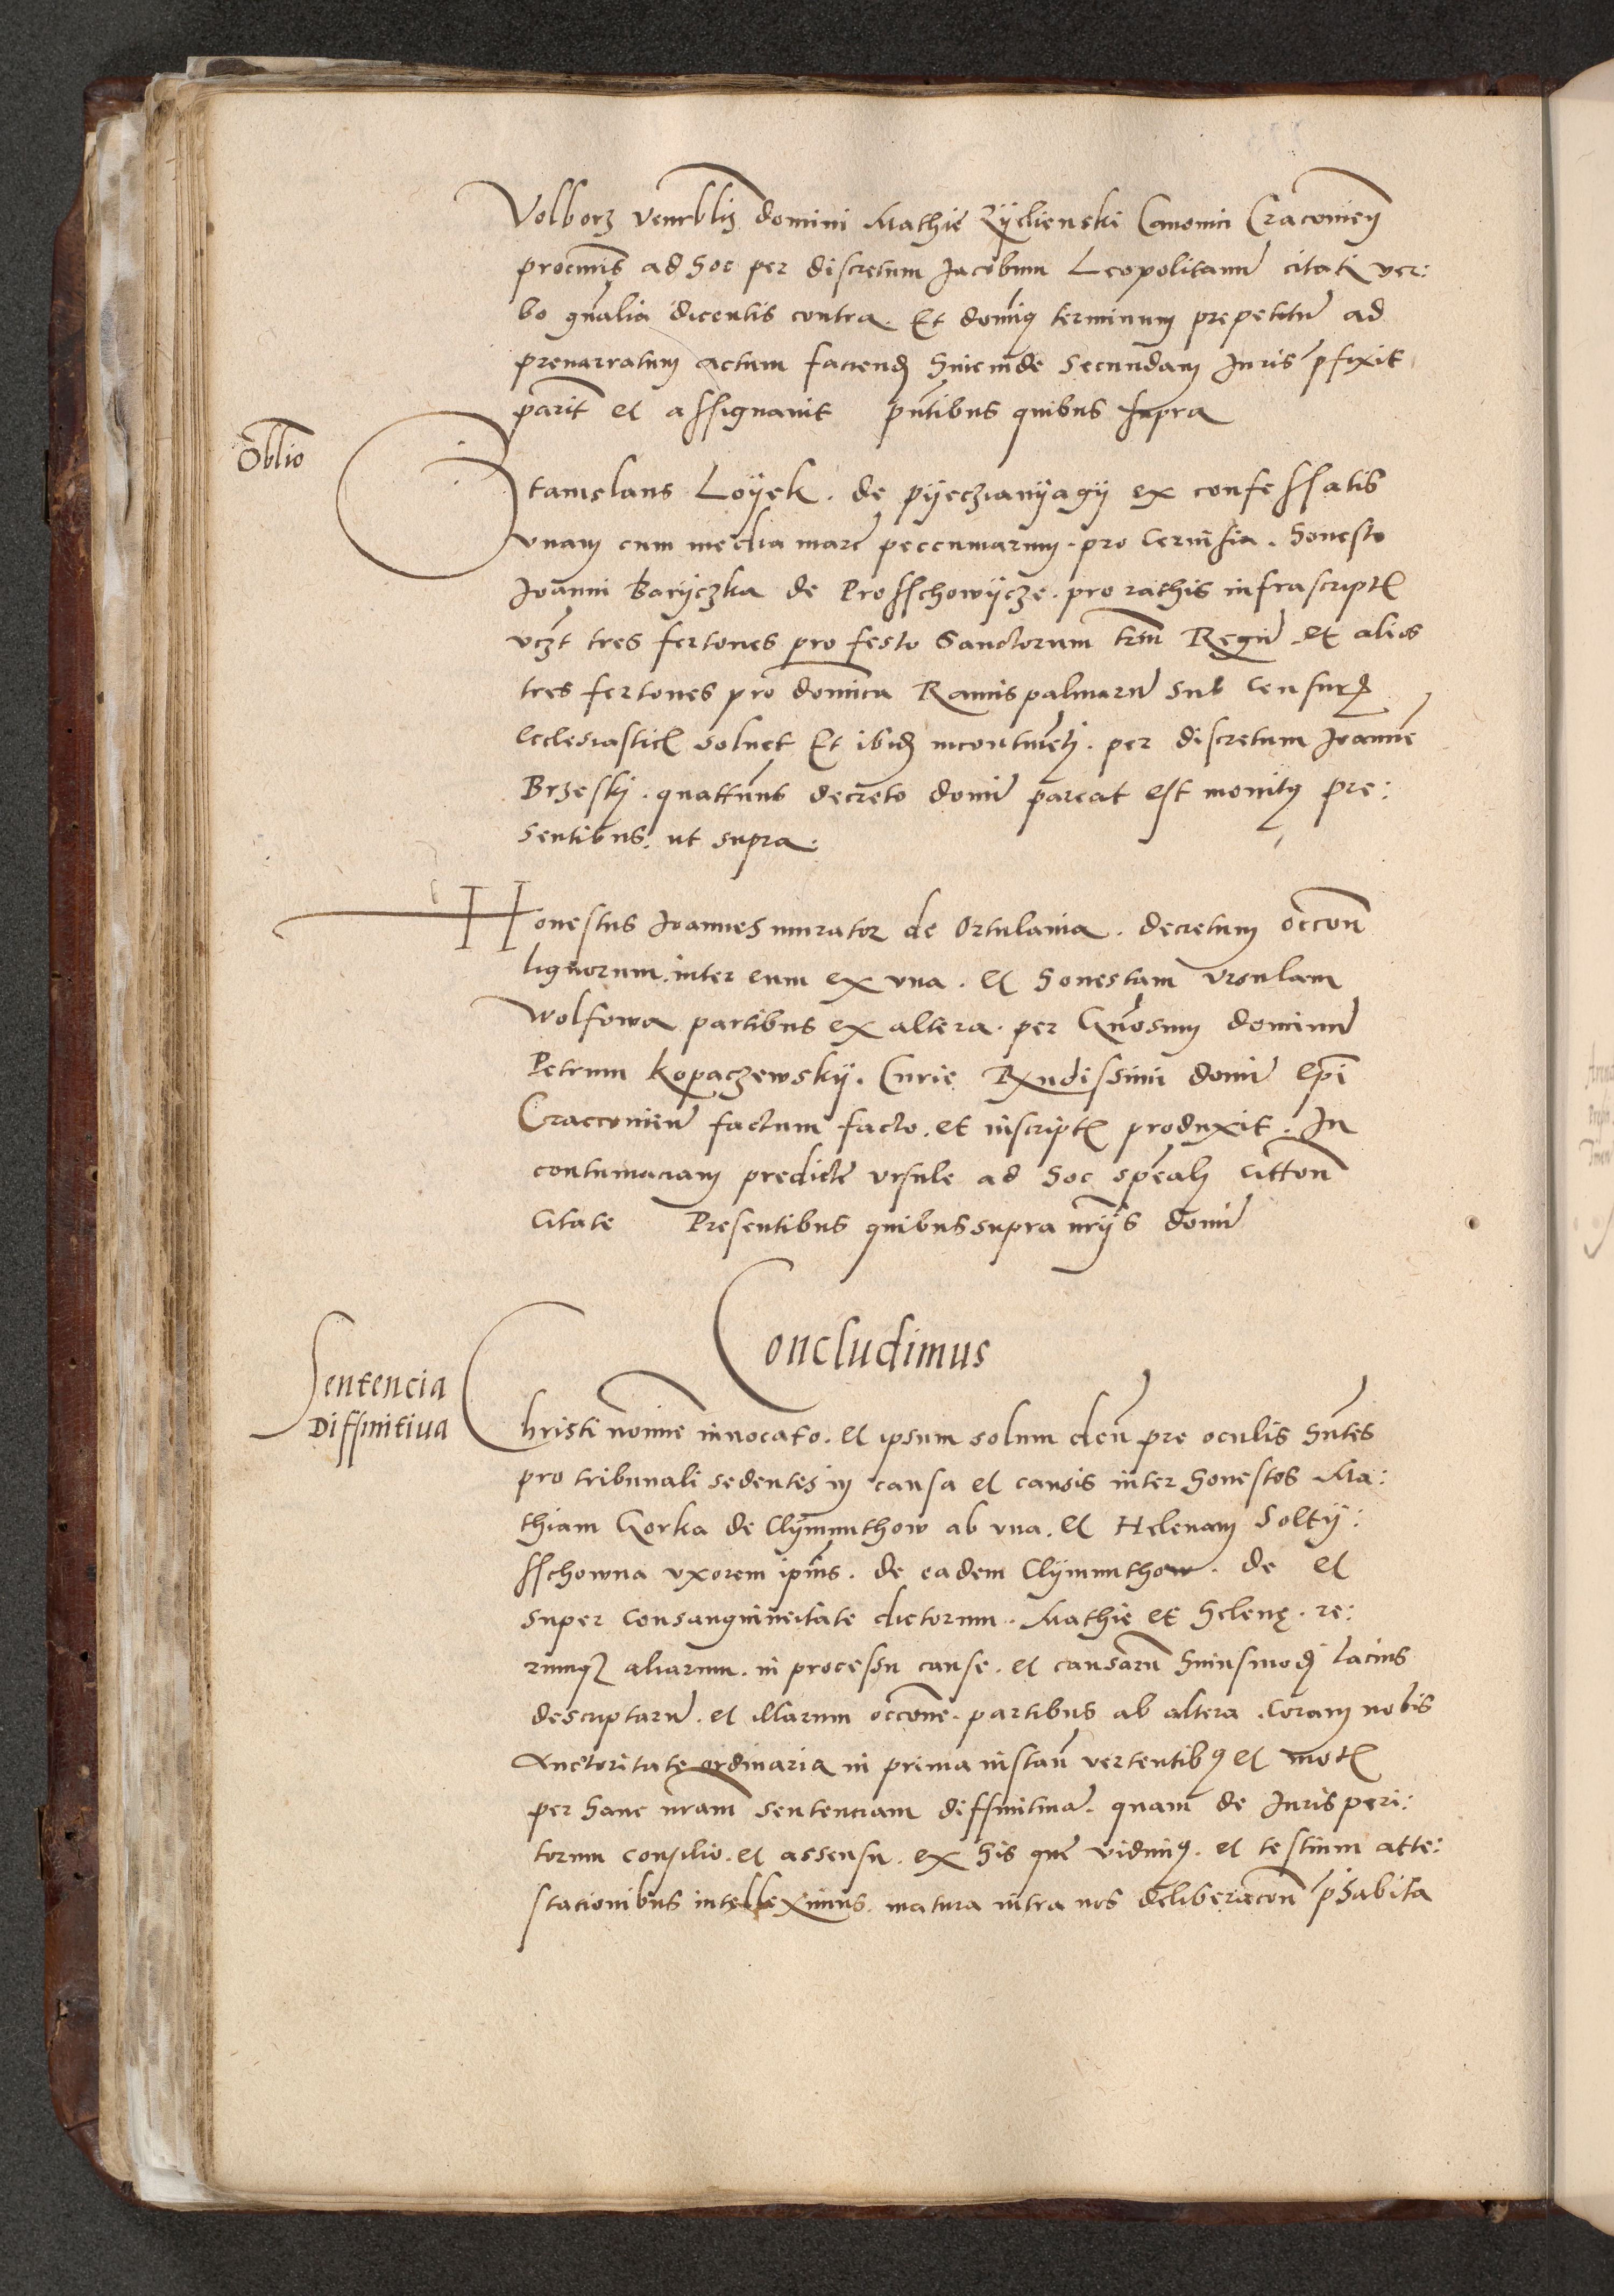 Volborz venerblis domini Mathie Zÿclienski Canonici Cracouien
procuris ad hoc per discretum Jacobum Leopolitanu citati ver:
bo gnalia dicentis contra. Et dominus terminum prepetitu ad
prenarratum actum faciend hincinde secundam Juris pfixit
parit et assignauit pntibus quibus supra
Oblio
Stanislaus Loÿek. de pÿeczianÿagÿ ex confessatis
vnam cum media marc peccuniarum. pro ceruisia. honesto
Joanni Barÿczka de Prosschowÿcze. pro rathis infrascriptis
vczt tres fertones pro festo Sanctorum trm Regu et alios
tres fertones pro dominica Ramispalmaru sub censuris
ecclesiasticis soluet Et ibidem incontinenti. per discretum Joanne
Brzeskj. quattus decreto domi pareat est monitus pre:
sentibus. ut supra.
Honestus Joannes murator de Ortulania. decretum occon
lignorum. inter eum ex vna. et honestam vrsulam
Wolfowa partibus ex altera. per Gnosum dominu
Petrum Kopaczewskÿ. Curie Rxndissimi domi epi
Cracconien factum facto. et inscriptis produxit. In
contumaciam predicte vrsule ad hoc speali citton
citate Presentibus quibussupra nrÿs domi
Concludimus
Sentencia
Diffinitiua
Christi nomine inuocato. et ipsum solum deu pre oculis hntes
pro tribunali sedentes in causa et causis inter honestos Ma:
thiam Gorka de Clÿmunthow ab vna. et Helenam Soltÿ:
sschowna vxorem ipius. de eadem Clÿmunthow. de et
super consanguineitate dictorum. Mathie et helenę. re:
rumq aliarum. in processu cause. et causaru huiusmodi lacius
descriptaru. et illarum occone. partibus ab altera. coram nobis
Auctoritate ordinaria in prima instan vertentibus et motis
per hanc nram sentenciam diffinitiua. quam de Jurisperi:
torum consilio. et assensu. ex his que vidimus. et testium atte:
stacionibus intelleximus. matura intra nos deliberacon phabita